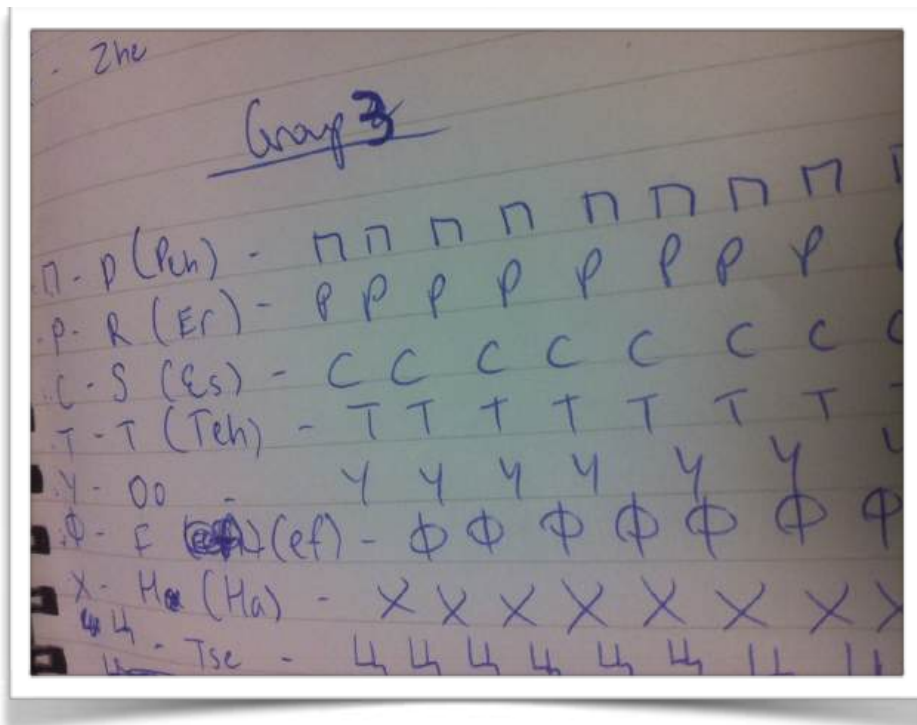 - Zhe
Group 3
П - P (Peh) - П П П П П П П П
Р - R (Er) - Р Р Р Р Р Р Р Р
С - S (Es) - С С С С С С С С
Т - T (Teh) - Т Т Т Т Т Т Т
У - Oo - У У У У У У
Ф - F (ef) - Ф Ф Ф Ф Ф Ф Ф
Х - Ha (Ha) - Х Х Х Х Х Х Х Х
Ц - Tse - Ц Ц Ц Ц Ц Ц Ц